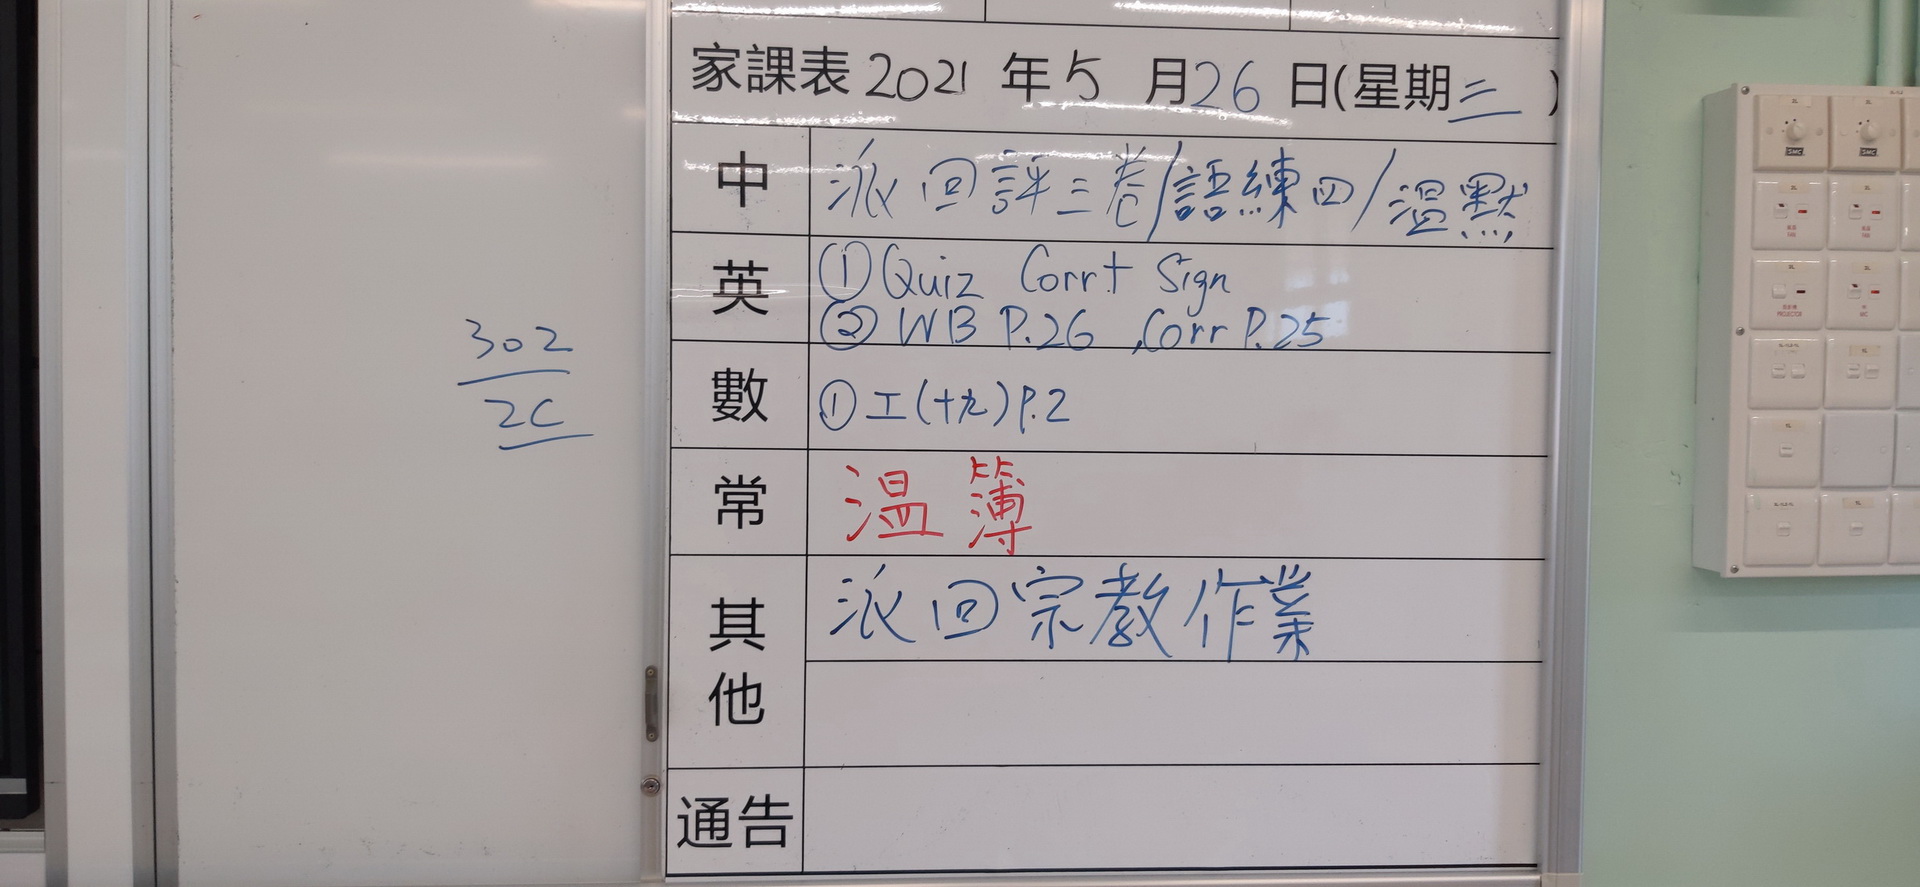 302
2C
家課表 2021 年 5 月 26 日(星期三)
中 派回評三卷/語練四/溫默
英 ① Quiz Corr + Sign
② WB P.26 , Corr P.25
數 ① 工(十九) P.2
常 溫簿
其他 派回宗教作業
通告